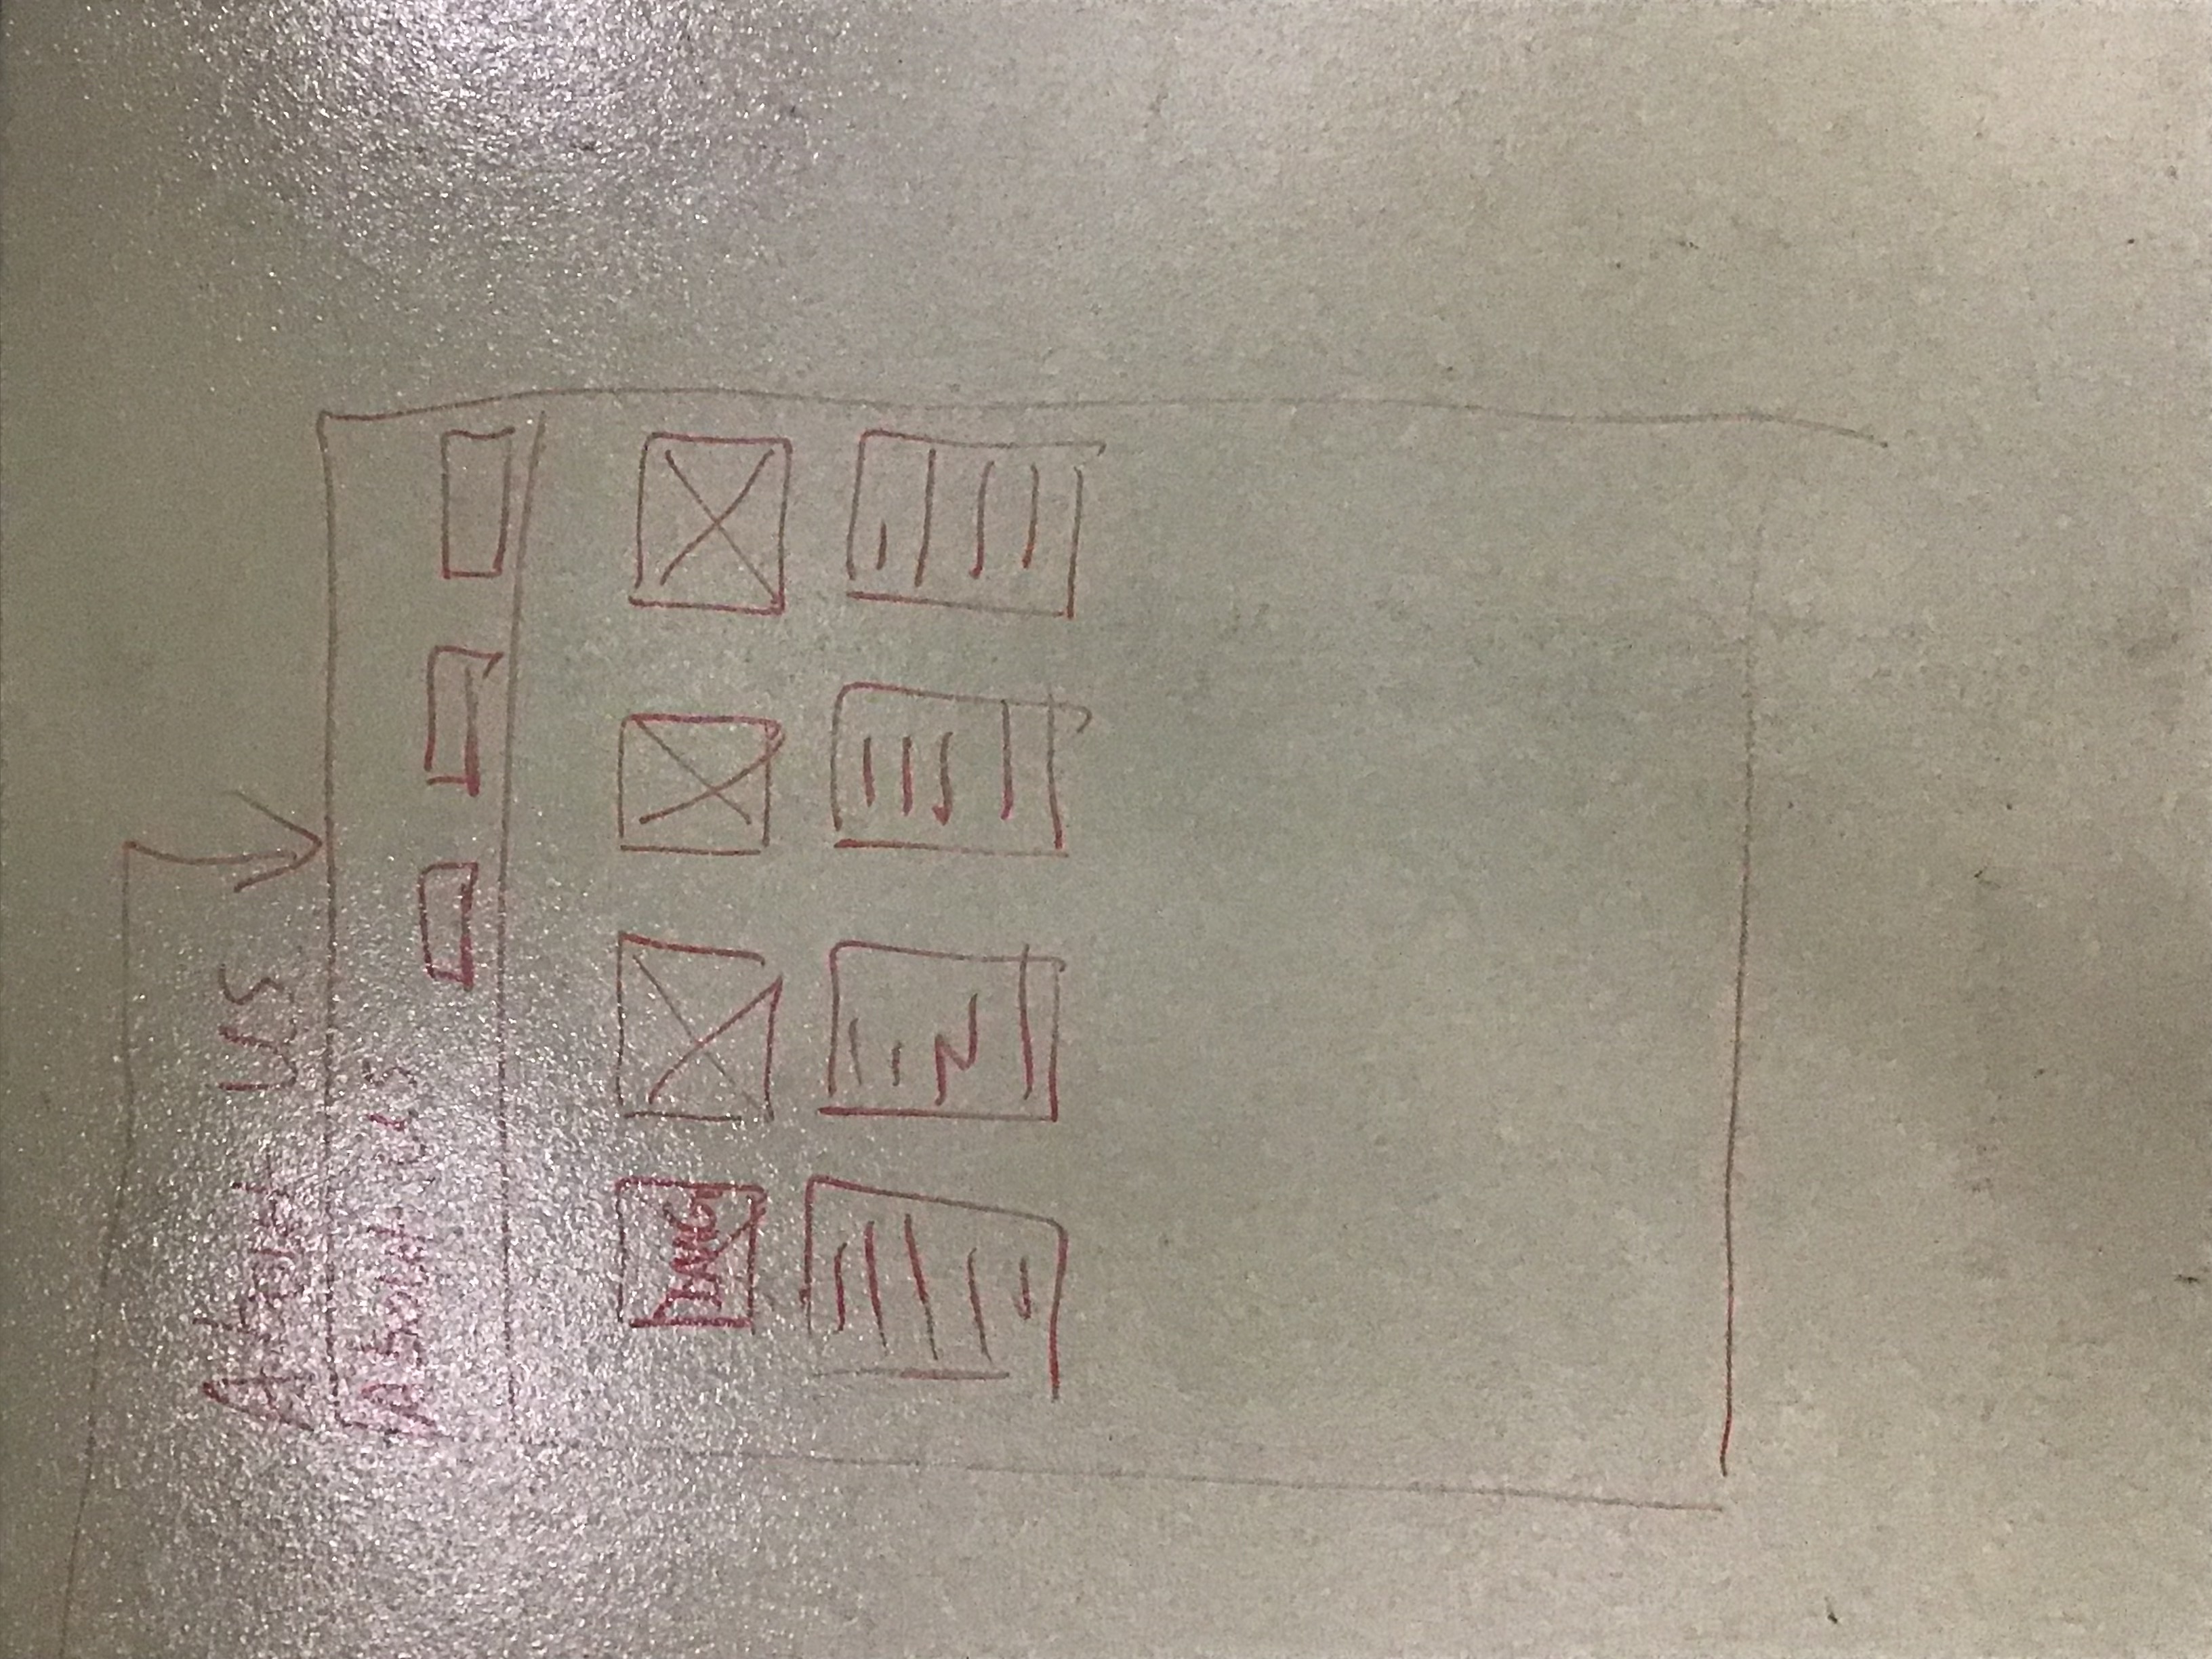 About us
About us
IMG